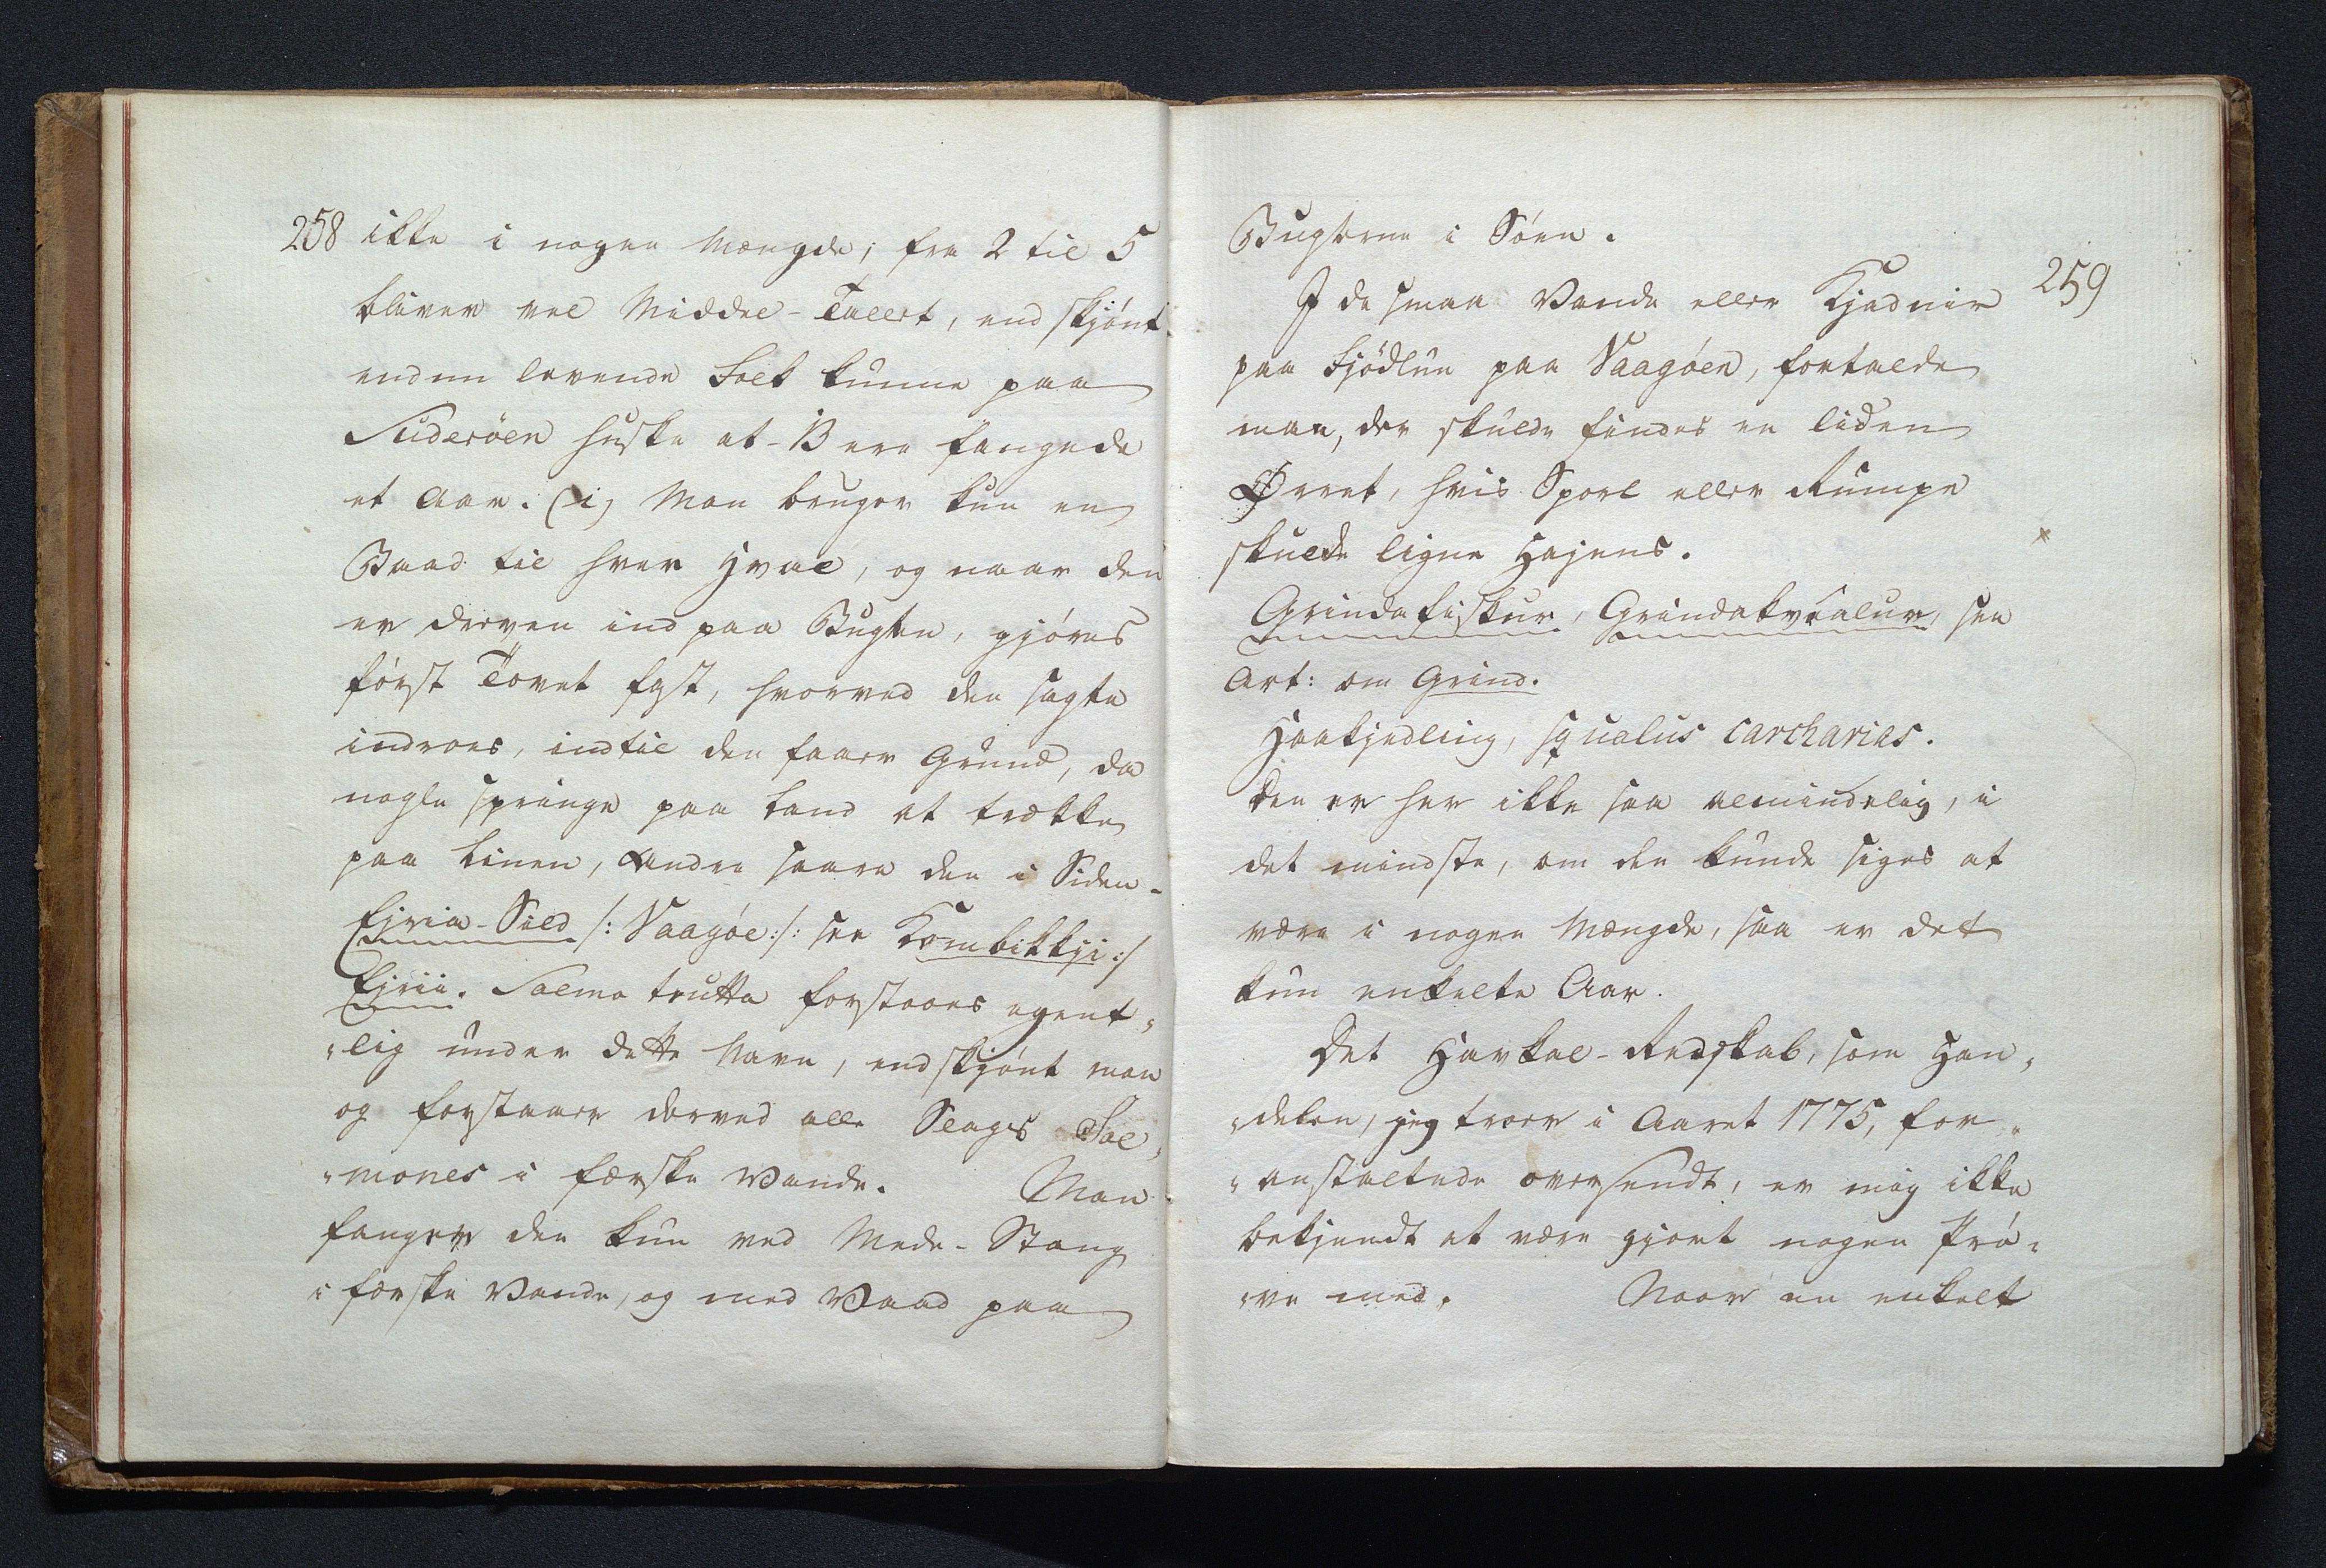 258 ikke i nogen Mængde; fra 2 til 5
bliver vel Middel-Tallet, endskjönt
endnu levende Folk kunne paa
Suderöen huske at 13 ere fangede
et Aar. (i) Man bruger kun en
Baad til hver Hval, og naar den
er dreven ind paa Bugten, gjöres
först Tovet fast, hvorved den sagte
indroes, indtil den faaer Grund, da
nogle springe paa Land at trække
paa Linen, Andre saare den i Siden.
Ejvia-Sild /: Vaagöe :/: see Kombikkji :/
Ejvii. Salmo trutta forstaaes egent-
-lig under dette Navn, endskjönt man
og forstaaer derved alle Slags Sal-
-mones i færske Vande. Man
fanger den kun ved Mede-Stang
i færske Vande, og med Vaad paa
Bugterne i Söen.
259
I de smaa Vande eller Kjadnir
paa Fjödlun paa Vaagöen, fortalde
man, der skulde findes en liden
Ørret, hvis Sporl eller Rumpe
skulde ligne Hajens.
Grindafiskur, Grindakvealur, see
Art: om Grind.
Haakjedling, squalus carcharias.
Den er her ikke saa almindelig, i
det mindste, om den kunde siges at
være i nogen Mængde, saa er det
kun enkelte Aar.
Det Havkal-Redskab, som Han-
-delen, jeg troer i Aaret 1775, for-
-anstaltede oversendt, er mig ikke
bekjendt at være gjort nogen Prö-
-ve med. Naar en enkelt